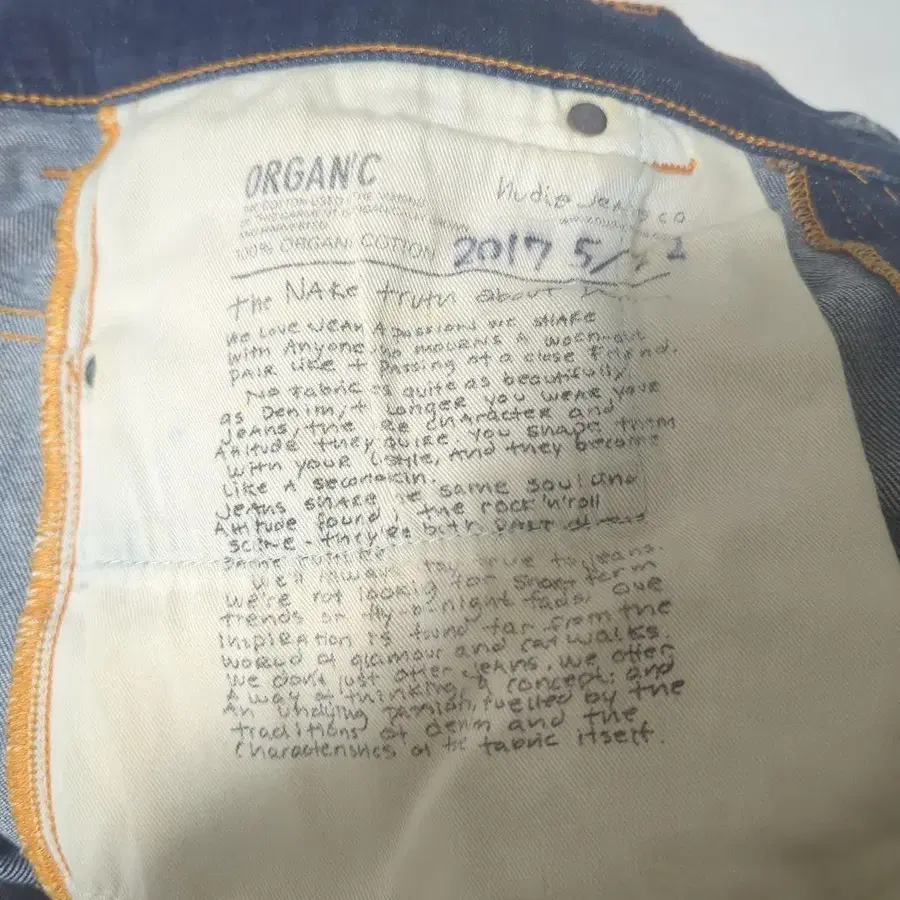 ORGAN'C
Nudie Jeans co
100% ORGANI COTTON
2017 5/
the NAKe truth about
WE LOVE JEAN A PASSION WE SHARE
with Anyone ho mourns A worn-out
PAIR LIKE t PASSing of a close friend.
No fabric is quite as beautifully
as Denim, t Longer you wear your
Jeans, the re CHARACTER and
Attitude they quire. You shape them
with your L style, And they become
Like A secon kin.
Jeans SHARE e same soul and
Attitude found the rock 'n' roll
scene - they're both PART
SAME
We'll lway tay true to jeans.
we're not lookig for short term
trends or fly-b-night fads. Our
inspiration is found far from the
world of glamour and catwalks.
We dont just offer jeans, we offer
A way of thinking, a concept; and
An undying passion, fuelled by the
traditions of denim and the
Characteristics of the fabric itself.